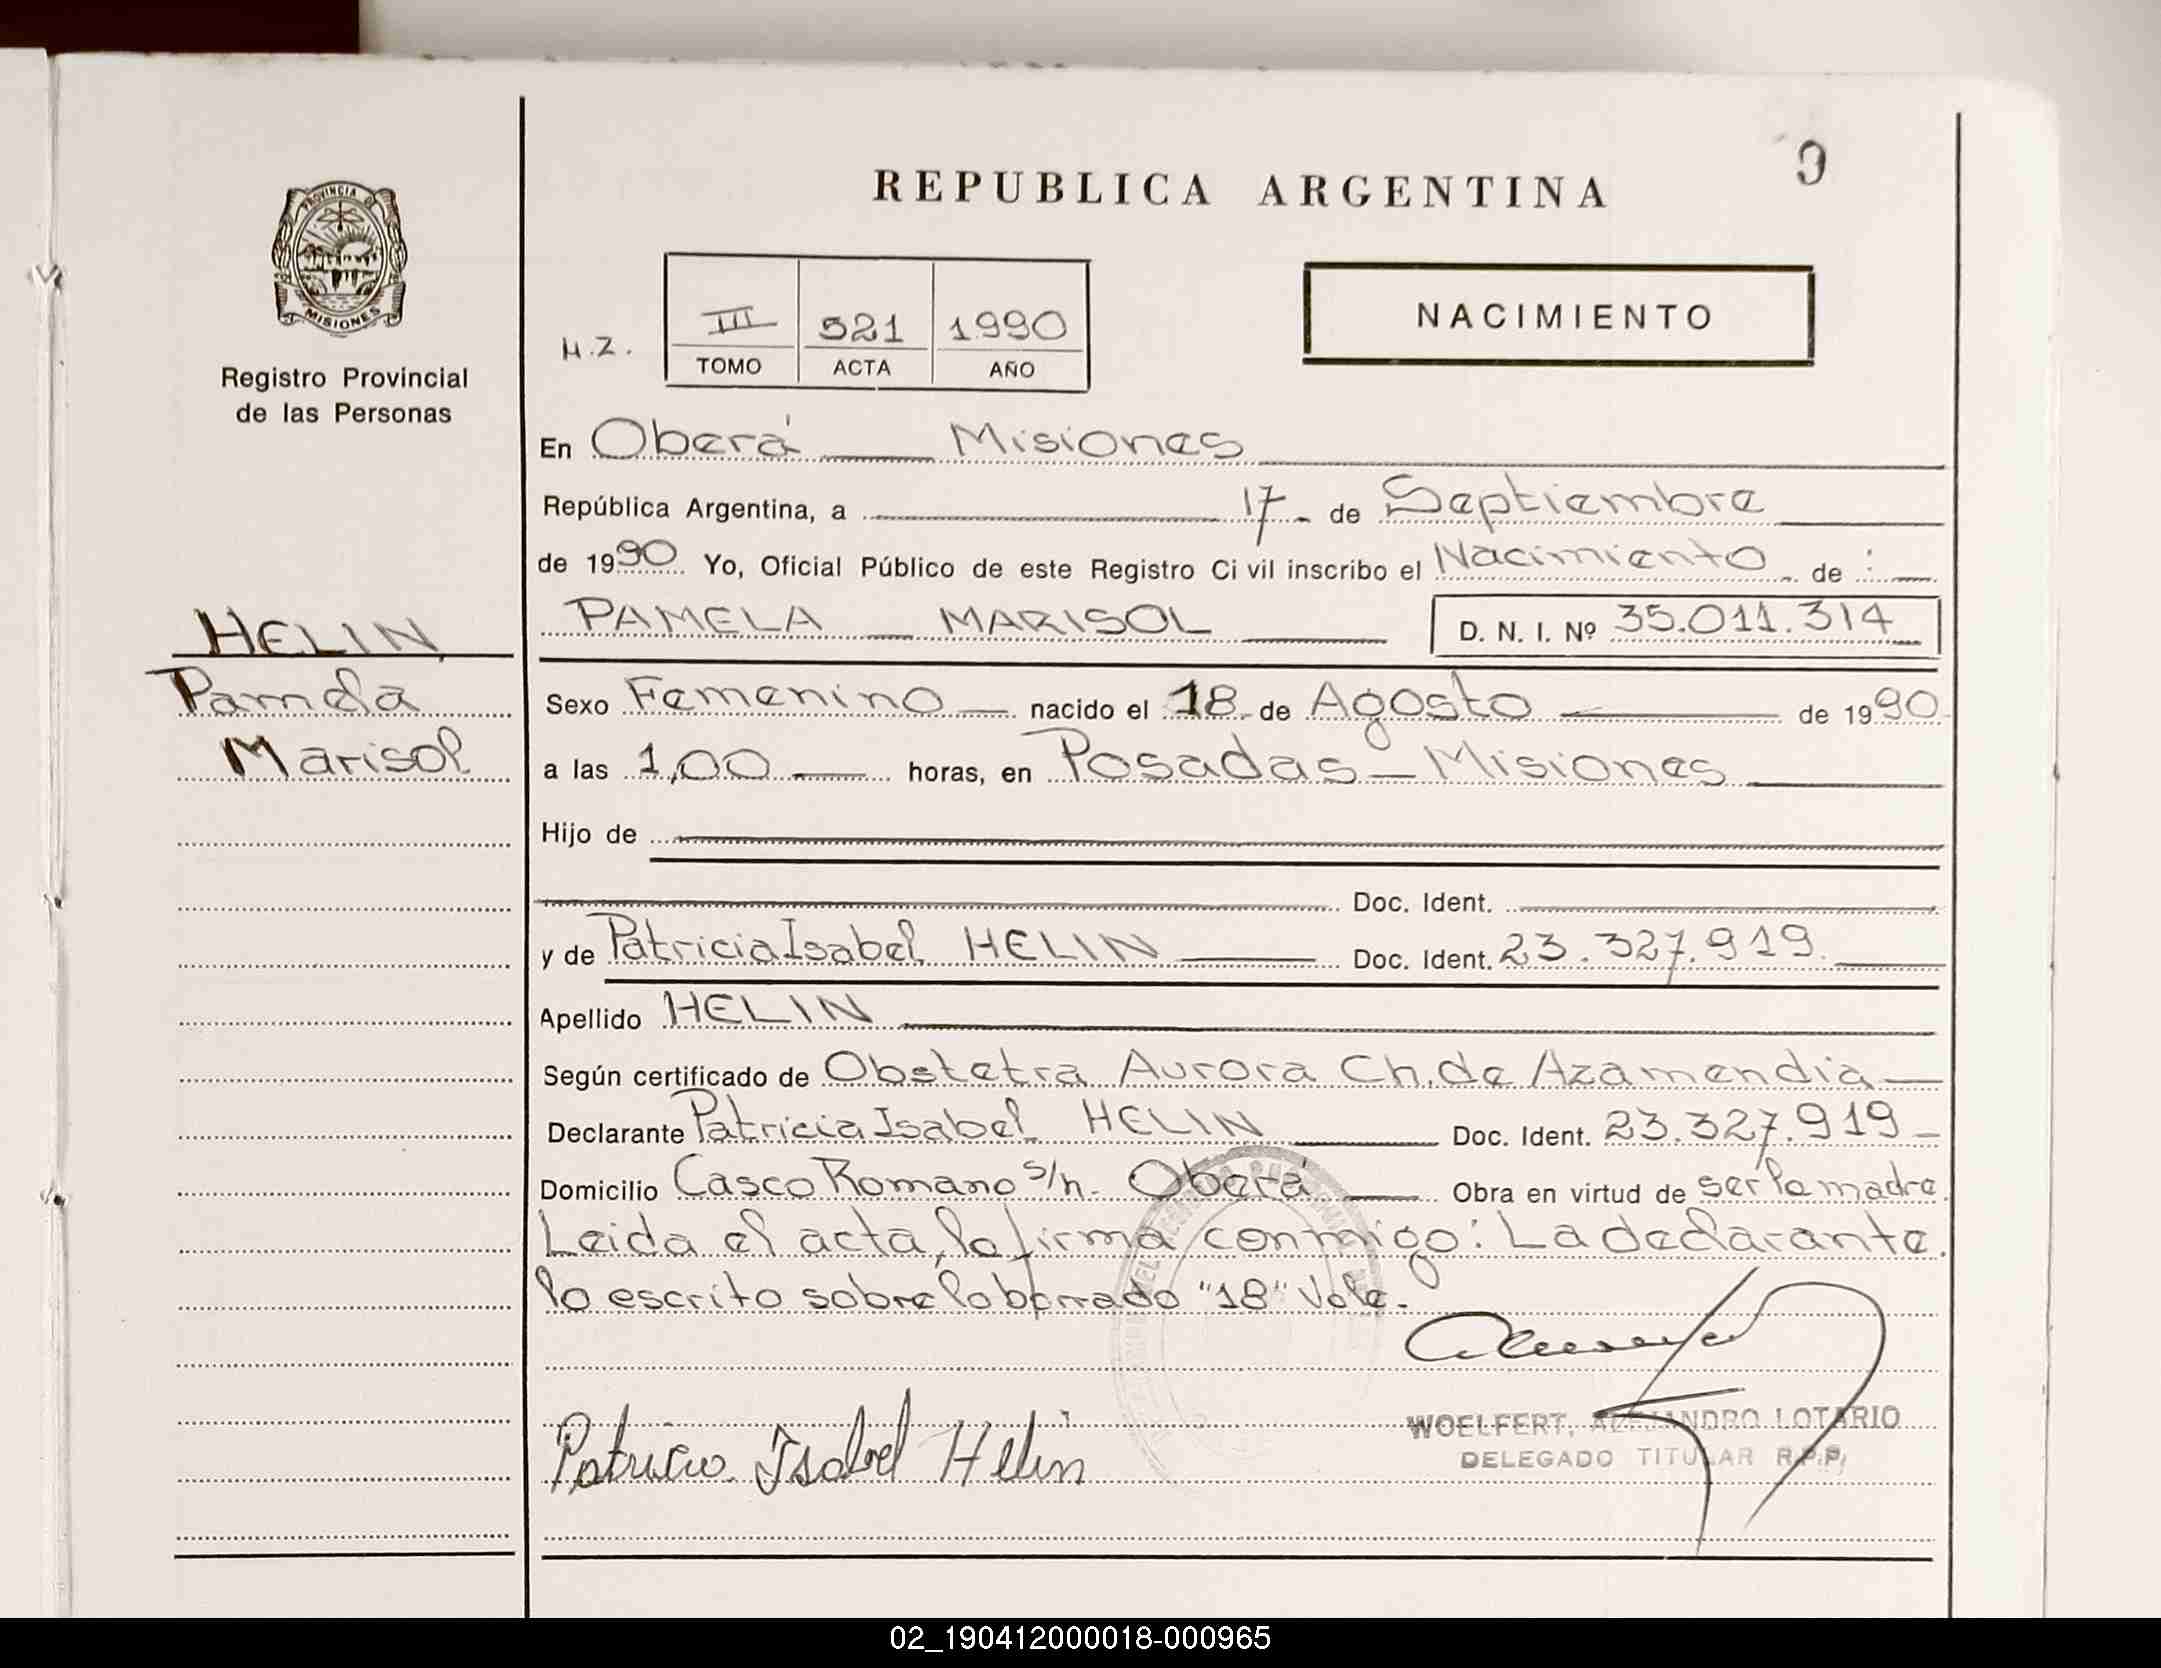 REPUBLICA ARGENTINA
NACIMIENTO
PROVINCIA DE
MISIONES
Registro Provincial
de las Personas
M.Z.
III 521 1990
TOMO ACTA AÑO
En Oberá Misiones
República Argentina, a 17 de Septiembre
de 1990 Yo, Oficial Público de este Registro Ci vil inscribo el Nacimiento de :
PAMELA MARISOL D. N. I. Nº 35.011.314
HELIN
Pamela
Marisol
Sexo Femenino nacido el 18 de Agosto de 1990
a las 1,00 horas, en Posadas - Misiones
Hijo de
Doc. Ident.
y de Patricia Isabel HELIN Doc. Ident. 23.327.919.
Apellido HELIN
Según certificado de Obstetra Aurora Ch. de Azamendia
Declarante Patricia Isabel HELIN Doc. Ident. 23.327.919
Domicilio Casco Romano s/n. Oberá Obra en virtud de ser la madre.
Leida el acta, la firma conmigo: La declarante.
lo escrito sobre lo borrado "18" Vale.
Patricia Isabel Helin
WOELFERT, ALEJANDRO LOTARIO
DELEGADO TITULAR R.P.P.
02_190412000018-000965